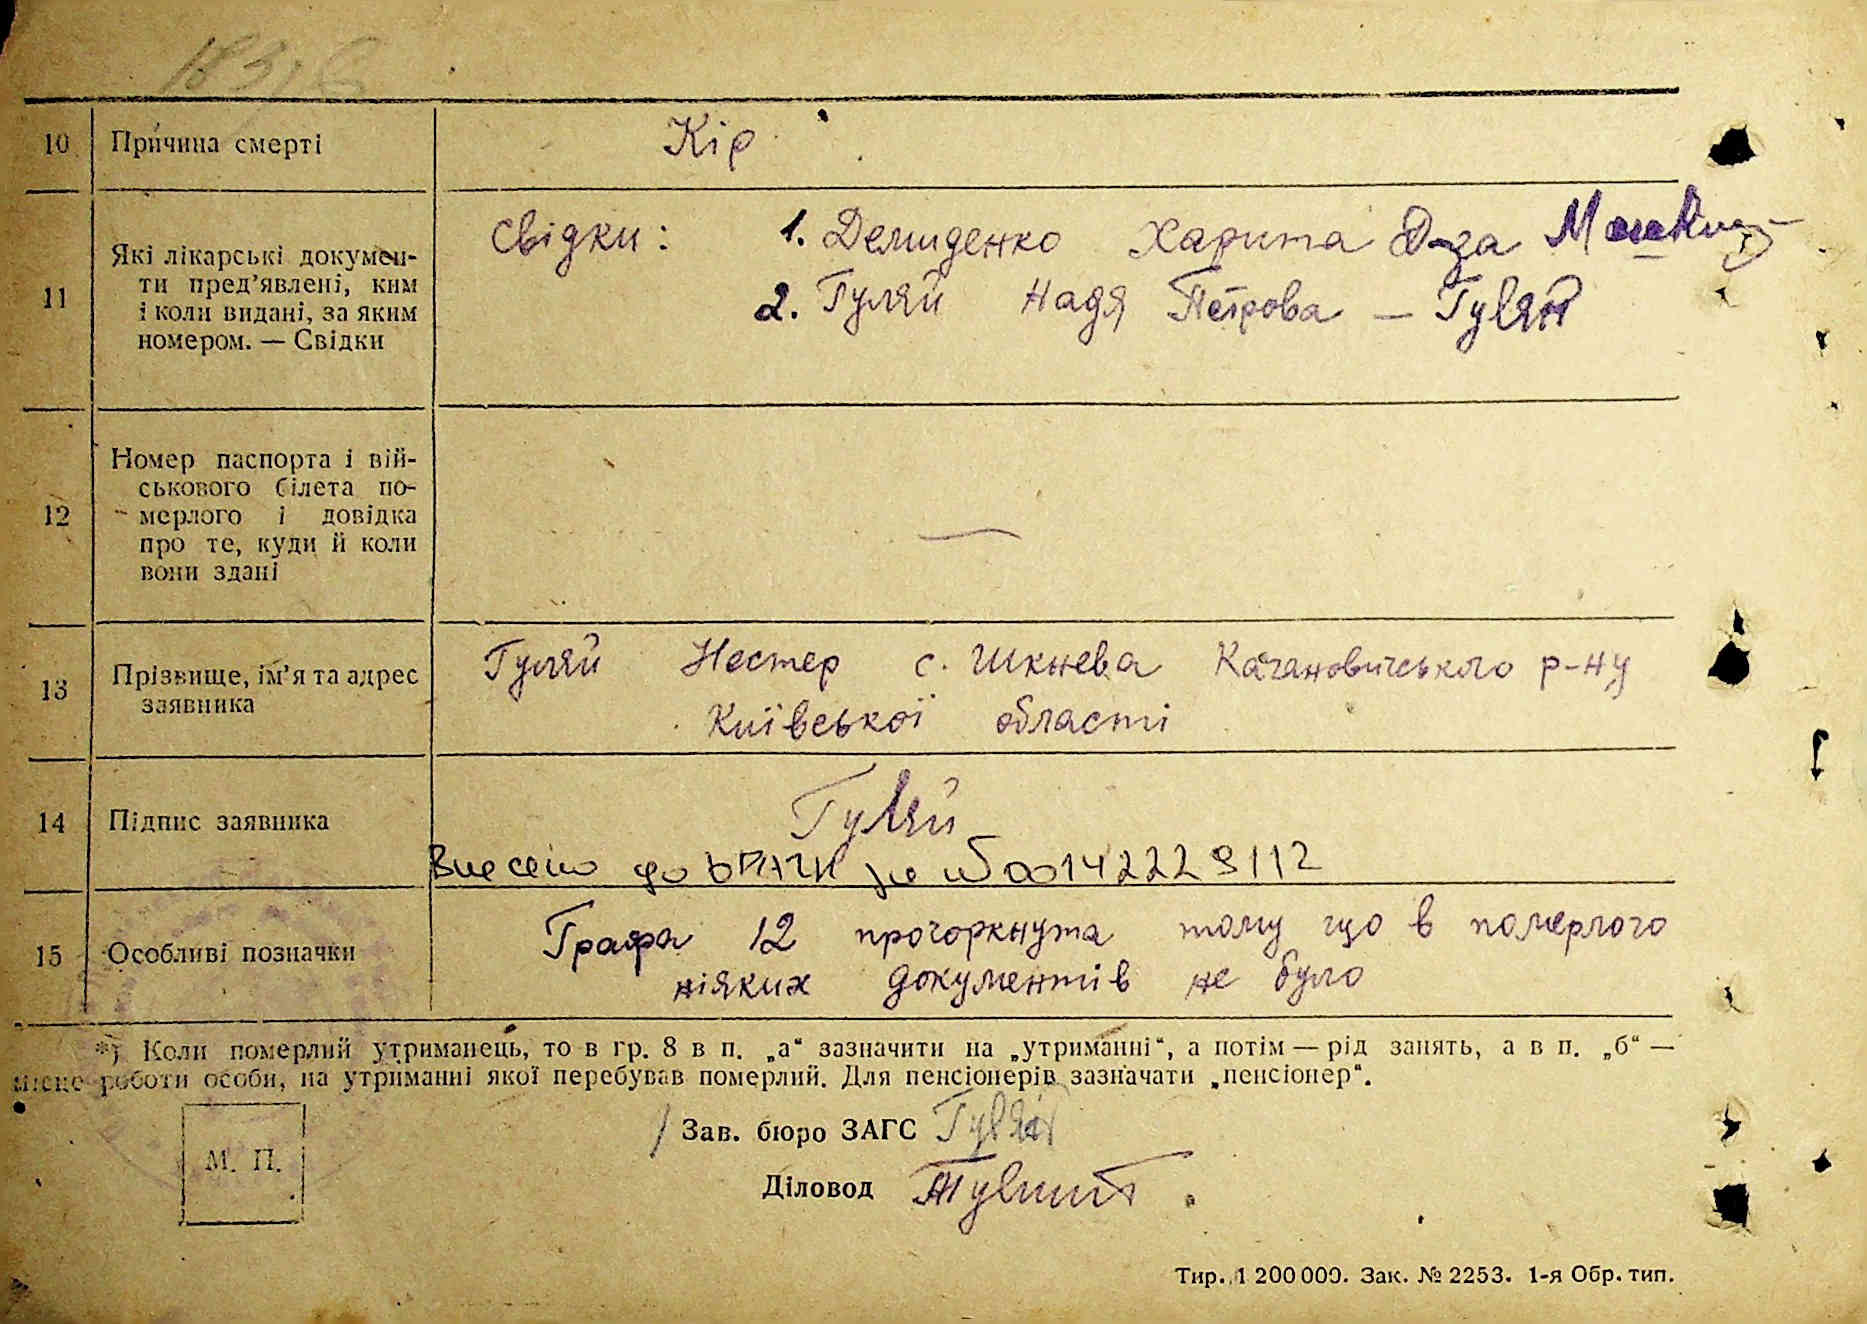 10 Причина смерті Кір
11 Які лікарські докумен-
ти пред’явлені, ким
і коли видані, за яким
номером. — Свідки
Свідки: 1. Демиденко Харита
2. Гуляй Надя Петрова — Гуляй
12 Номер паспорта і вій-
ськового білета по-
мерлого і довідка
про те, куди й коли
вони здані —
13 Прізвище, ім’я та адрес
заявника
Гуляй Нестер с. Шкнева Качановичського р-ну
Київської області
14 Підпис заявника Гуляй
Внесено до за № 00142229112
15 Особливі позначки
Графа 12 прочоркнута тому що в померлого
ніяких документів не було
*) Коли померлий утриманець, то в гр. 8 в п. „а“ зазначити на „утриманні“, а потім — рід занять, а в п. „б“ —
місце роботи особи, на утриманні якої перебував померлий. Для пенсіонерів зазначати „пенсіонер“.
М. П.
Зав. бюро ЗАГС Гуляй
Діловод
Тир. 1 200 000. Зак. № 2253. 1-я Обр. тип.